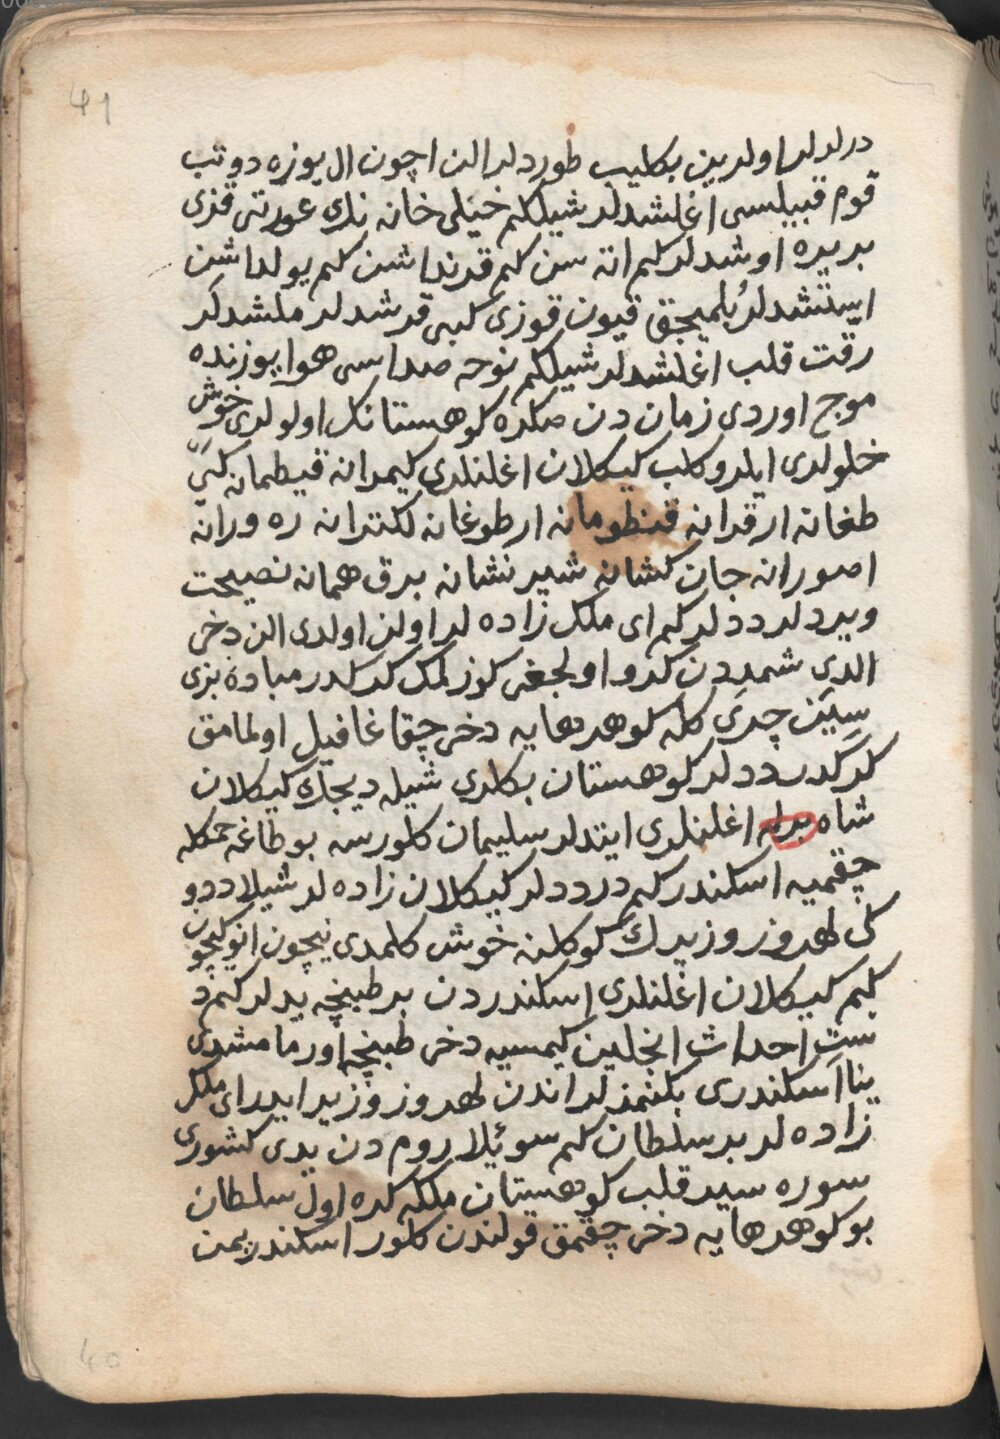 41
درلر لر اولرین بکلیب طوردلر الن اچون ال یوزه دوتب
قوم قبیلسی اغلشدلر شیلکم خیلی خانه نك عورتی قزی
بر یره اوشدلر کم اته سن کم قرنداشن کم یولداشن
ایستشدلر بلمیجق قیون قوزی کبی قرشدلر ملشدلر
رقت قلب اغلشدلر شیلکم نوحه صداسی هوا یوزنده
موج اوردی زمان دن صکره کوهستانك اولولری خوش
خلولری ایلرو کلب کیکلان اغلنلری کیمرانه قیطمانه
طغانه ارقرانه قنطومانه ارطوغانه لکنترانه ره ورانه
اصورانه جان کشانه شیر نشانه برق همانه نصیحت
ویردلر ددلر کم ای ملك زاده لر اولن اولدی الن دخی
الدی شمدن کرو اولجغی کوزلمك کرکدر مباده بزی
سیین چری کله کوهرهایه دخی چقا غافیل اولمامق
کرکدر ددلر کوهستان بکلری شیله دیجك کیکلان
شاه برله اغلنلری ایتدلر سلیمان کلورسه بو طاغه
چقمیه اسکندر کم در ددلر کیکلان زاده لر شیلا ددو
کی طهروز وزیرك کوکلنه خوش کلمدی نیچون انوکیچون
کیم کیکلان اغلنلری اسکندردن بر طبنچه یدلر کم
احداث انجلین کیمسیه دخی طبنچه اورمامشدی
ینا اسکندری بکنمزلر اندن طهروز وزیر ایدر ای ملك
زاده لر بر سلطان کم سوئیلا روم دن یدی کشوری
سوره سیر قلب کوهستان ملکه کره اول سلطان
بو کوهرهایه دخی چقمق قولندن کلور اسکندر یمن
40